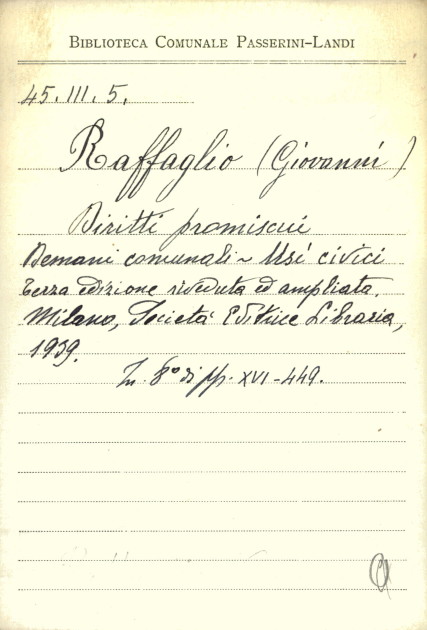 BIBLIOTECA COMUNALE PASSERINI-LANDI
45. III. 5.
Raffaglio (Giovanni)
Diritti promiscui
Demani comunali - Usi civici
terza edizione riveduta ed ampliata.
Milano, Società Editrice Libraria,
1939.
In 8° di pp. XVI-449.